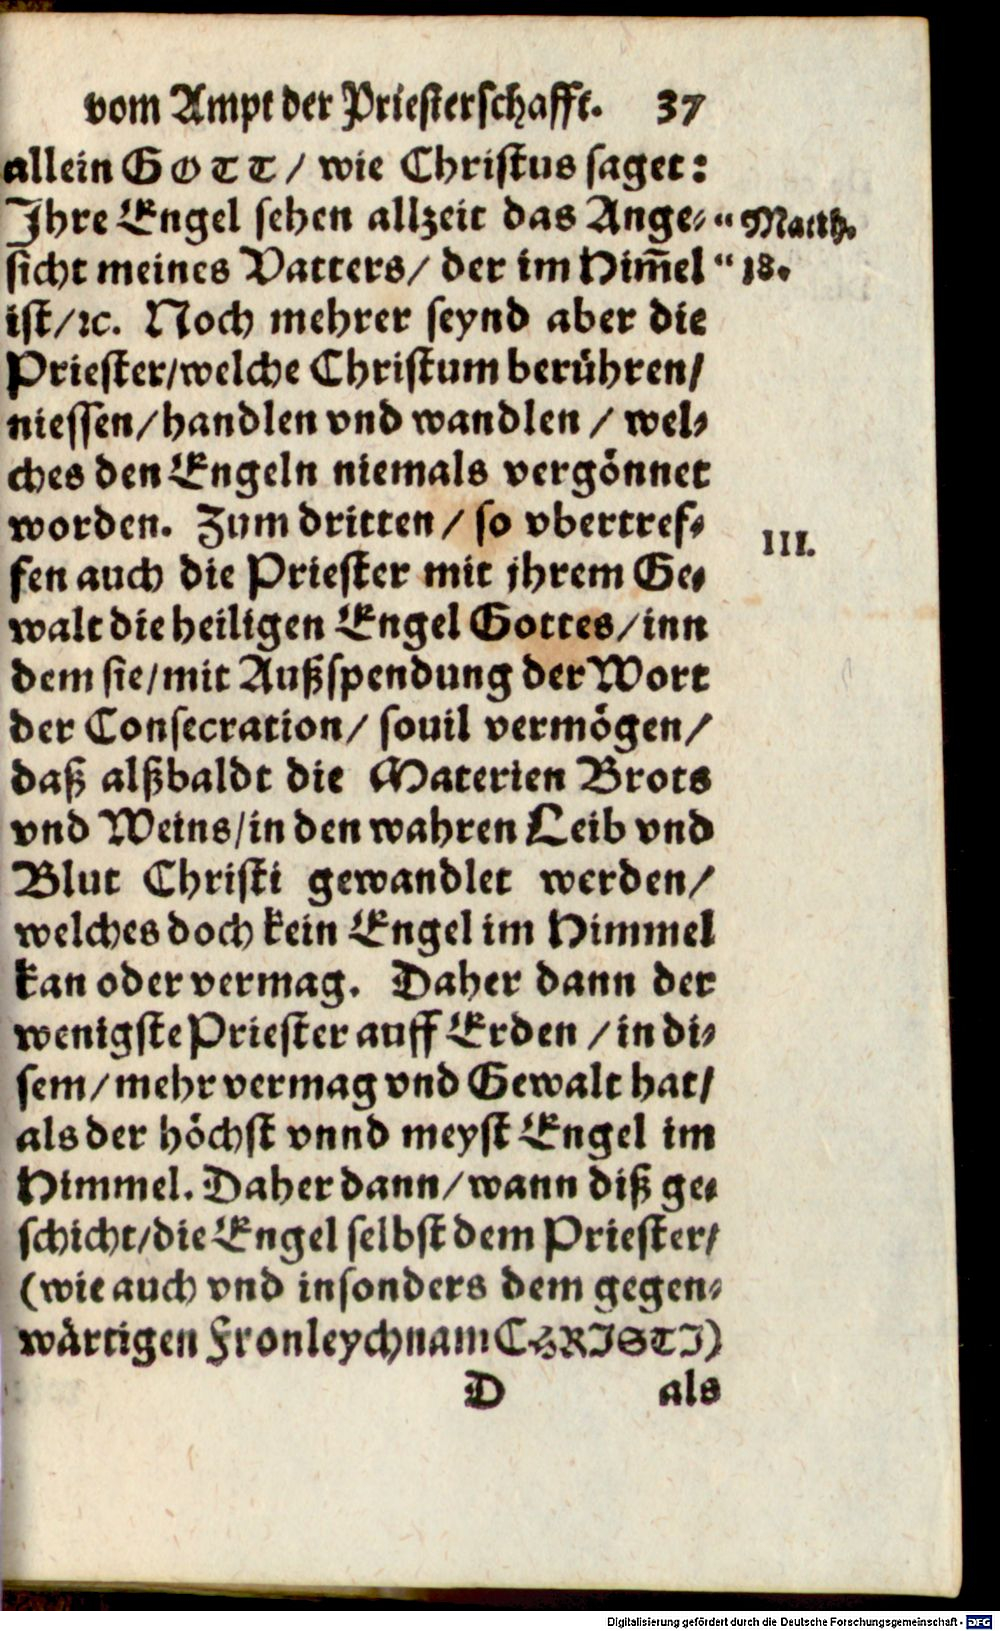 vom Ampt der Priesterschafft. 37
allein GOTT / wie Christus saget:
Ihre Engel sehen allzeit das Ange- " Matth.
sicht meines Vatters / der im Him̃el " 18.
ist / ꝛc. Noch mehrer seynd aber die
Priester / welche Christum berühren /
niessen / handlen vnd wandlen / wel-
ches den Engeln niemals vergönnet
worden. Zum dritten / so vbertref- III.
fen auch die Priester mit jhrem Ge-
walt die heiligen Engel Gottes / inn
dem sie / mit Außspendung der Wort
der Consecration / souil vermögen /
daß alßbaldt die Materien Brots
vnd Weins / in den wahren Leib vnd
Blut Christi gewandlet werden /
welches doch kein Engel im Himmel
kan oder vermag. Daher dann der
wenigste Priester auff Erden / in di-
sem / mehr vermag vnd Gewalt hat /
als der höchst vnnd meyst Engel im
Himmel. Daher dann / wann diß ge-
schicht / die Engel selbst dem Priester /
(wie auch vnd insonders dem gegen-
wärtigen Fronleychnam CHRISTI)
D als
Digitalisierung gefördert durch die Deutsche Forschungsgemeinschaft - DFG